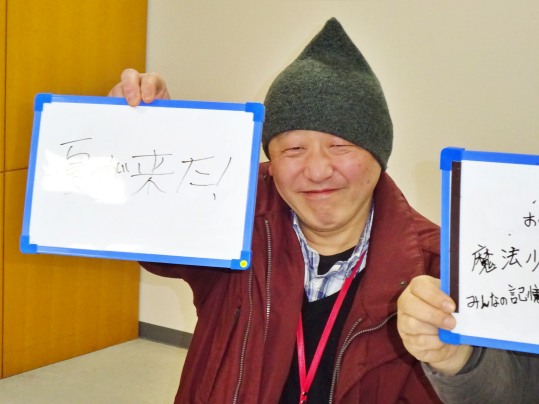 夏が来た!
お
魔法少
みんなの記憶